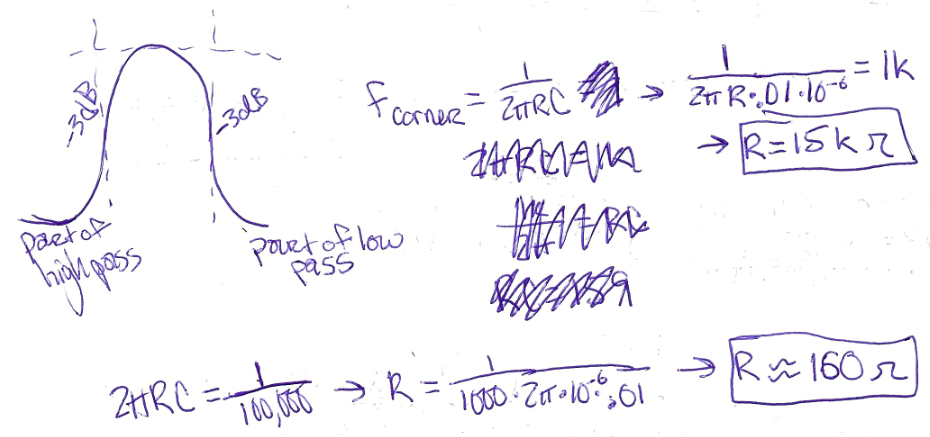 -3dB
-3dB
part of
high pass
part of low
pass
f corner = 1/(2πRC) → 1/(2πR·.01·10⁻⁶) = 1k
→ R=15kΩ
2πRC = 1/100,000 → R = 1/(1000·2π·10⁻⁶·.01) → R≈160Ω